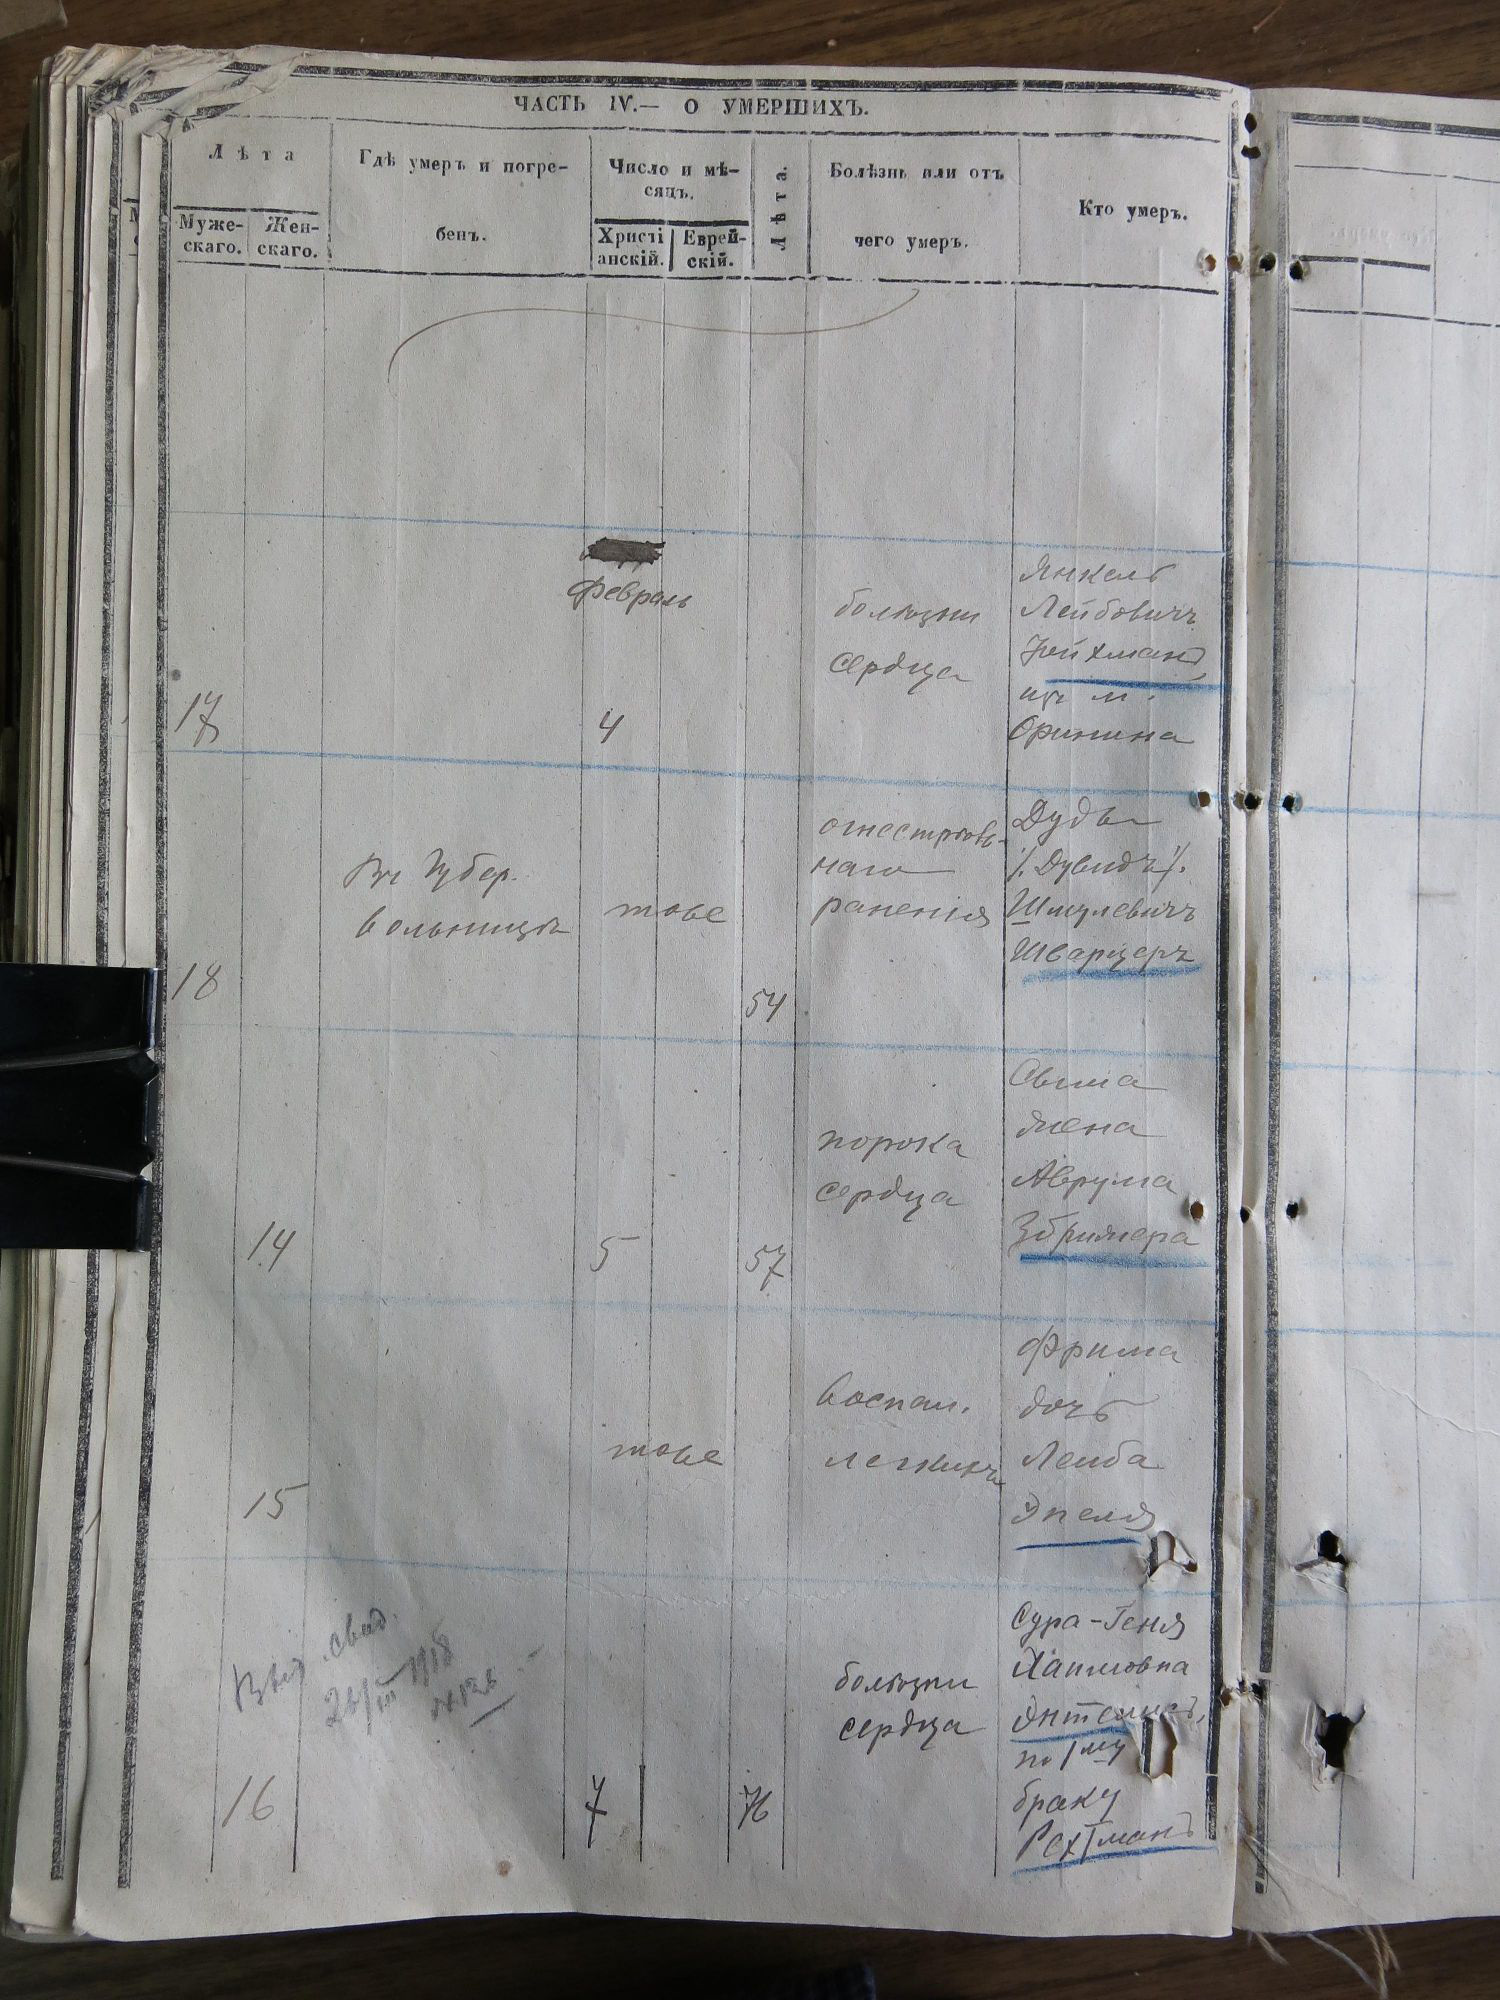 ЧАСТЬ IV.— О УМЕРШИХЪ.
Лѣта
Муже-
скаго.
Жен-
скаго.
Гдѣ умеръ и погре-
бенъ.
Число и мѣ-
сяцъ.
Христі
анскій.
Еврей-
скій.
Лѣта.
Болѣзнь или отъ
чего умеръ.
Кто умеръ.
17
Февраль
4
болѣзни
сердца
Янкель
Лейбовичъ
Рейхманъ,
изъ м.
Оринина
18
Въ Губер.
больницѣ
тоже
54
огнестрѣль-
наго
раненія
Дудь
/. Дувидъ /.
Шмулевичъ
Шварцеръ
14
5
57
порока
сердца
Сыма
жена
Аврума
15
тоже
воспал.
легкихъ
Фрима
дочь
Лейба
Эпеля
Выд. свид.
26/III 1918
16
7
76
болѣзни
сердца
Сура-Геня
Хаимовна
Энтелисъ,
по 1му
браку
Рехтманъ